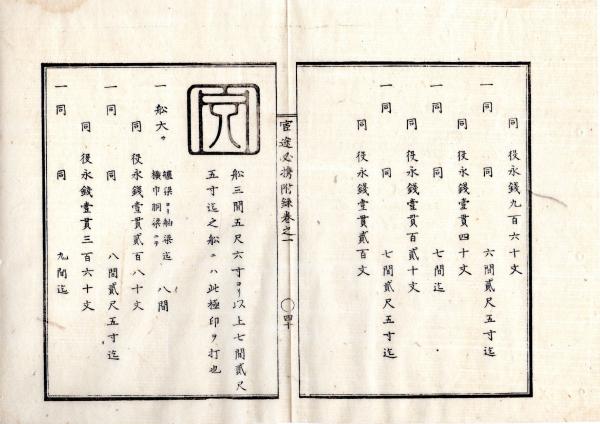 同 役永錢九百六十文
一 同 同 六間貳尺五寸迄
同 役永錢壹貫四十文
一 同 同 七間迄
同 役永錢壹貫百貳十文
一 同 同 七間貳尺五寸迄
同 役永錢壹貫貳百文
官途必携附録卷之一
四十
船三間五尺六寸ヨリ以上七間貳尺
五寸迄之船ニハ此極印ヲ打也
一 船大サ 横巾胴梁ニテ 八間
同 役永錢壹貫貳百八十文
一 同 同 八間貳尺五寸迄
同 役永錢壹貫三百六十文
一 同 同 九間迄